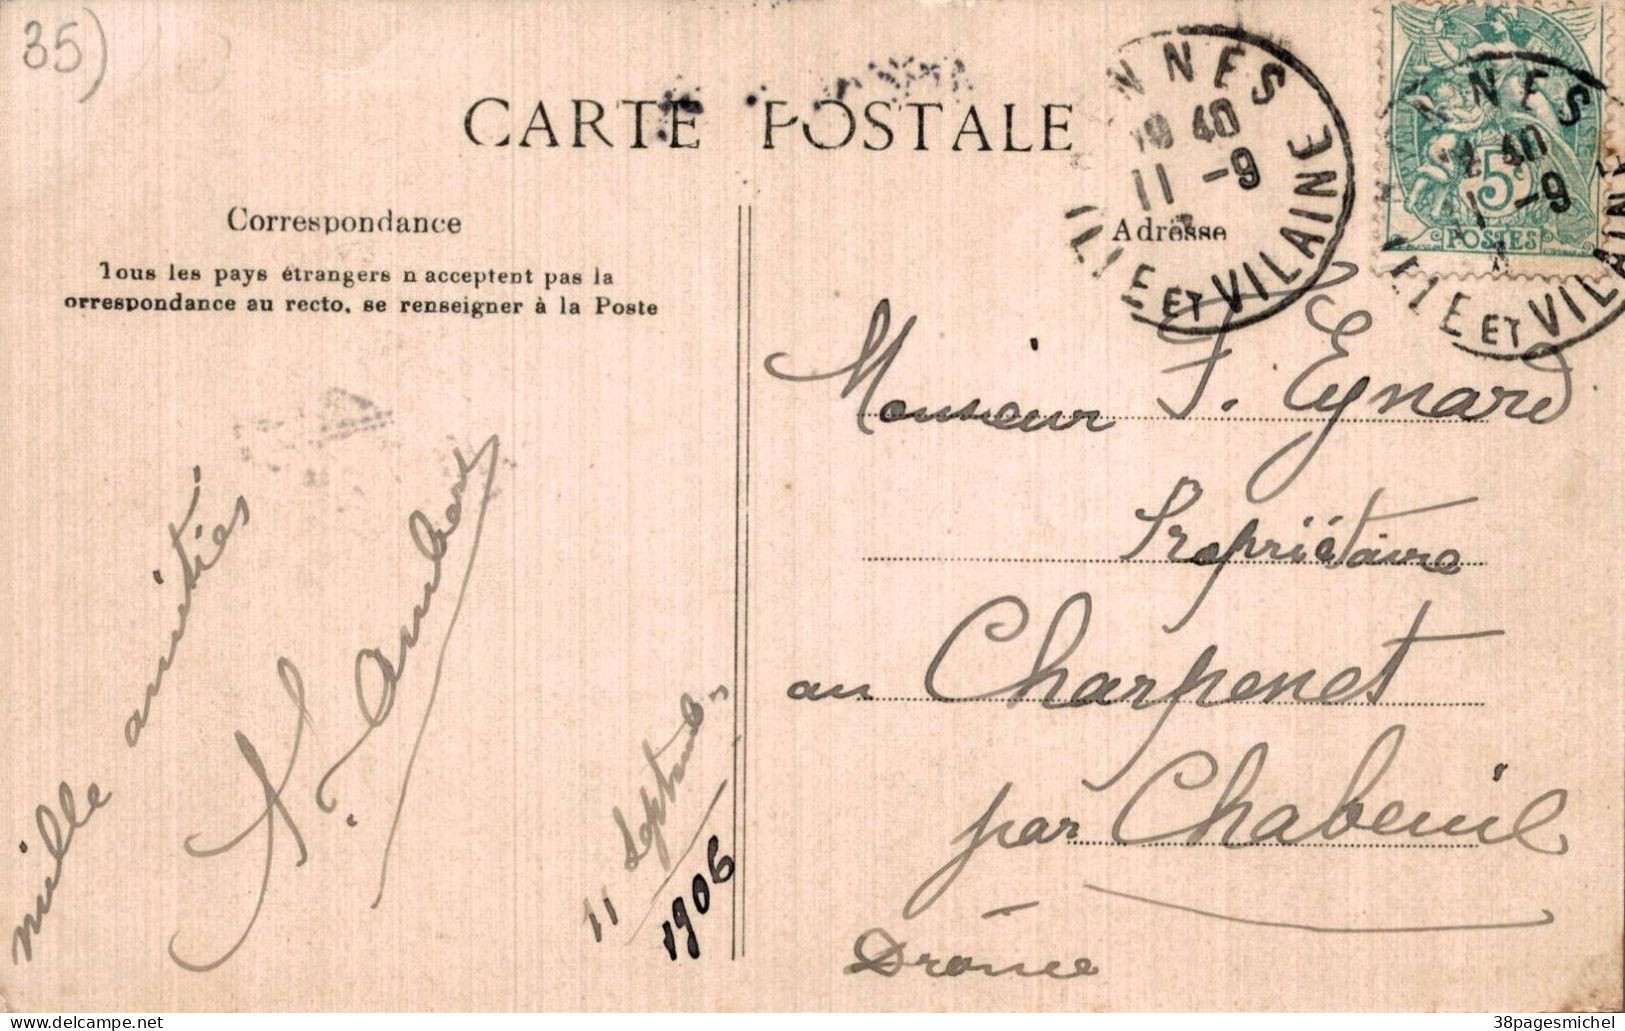 35)
CARTE POSTALE
NNES
19 40
11 -9
ILLE ET VILAINE
NNES
12 40
11 -9
ILLE ET VILAINE
5c
POSTES
Correspondance
Tous les pays étrangers n acceptent pas la
orrespondance au recto, se renseigner à la Poste
Adresse
mille amitiés
11 Septembre
1906
Monsieur F. Eynard
Propriétaire
au Charpenet
par Chabeuil
Drôme
delcampe.net
38pagesmichel